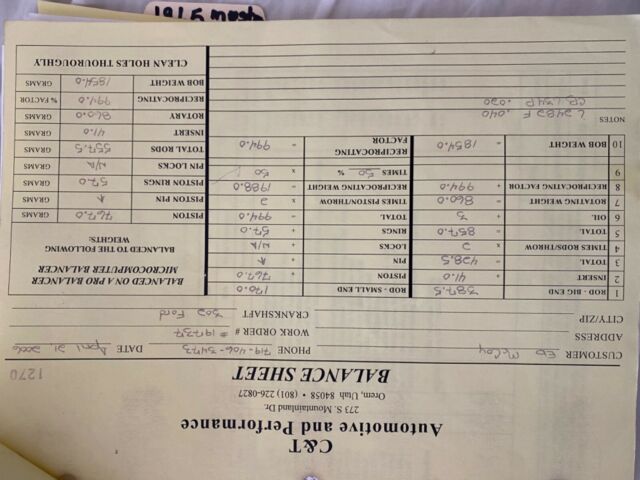 C&T
Automotive and Performance
273 S. Mountainland Dr.
Orem, Utah 84058 • (801) 226-0827
BALANCE SHEET
1270
CUSTOMER Ed McCoy PHONE 719-406-3473 DATE April 21, 2006
ADDRESS WORK ORDER # 19737
CITY/ZIP CRANKSHAFT 302 Ford
1 ROD - BIG END 387.5 ROD - SMALL END 170.0
2 INSERT + 41.0 PISTON + 767.0
3 TOTAL = 428.5 PIN +
4 TIMES RODS/THROW x 2 LOCKS + N/A
5 TOTAL = 857.0 RINGS + 57.0
6 OIL + 3 TOTAL = 994.0
7 ROTATING WEIGHT = 860.0 TIMES PISTON/THROW x 2
8 RECIPROCATING FACTOR + 994.0 RECIPROCATING WEIGHT = 1988.0
9 TIMES 50 % x 50
10 BOB WEIGHT = 1854.0 RECIPROCATING FACTOR = 994.0
BALANCED ON A PRO BALANCER
MICROCOMPUTER BALANCER
BALANCED TO THE FOLLOWING
WEIGHTS:
PISTON 767.0 GRAMS
PISTON PIN GRAMS
PISTON RINGS 57.0 GRAMS
PIN LOCKS N/A GRAMS
TOTAL RODS 557.5 GRAMS
INSERT 41.0 GRAMS
ROTARY 860.0 GRAMS
RECIPROCATING 994.0 % FACTOR
BOB WEIGHT 1854.0 GRAMS
CLEAN HOLES THOUROUGHLY
NOTES L2482F .040
.020